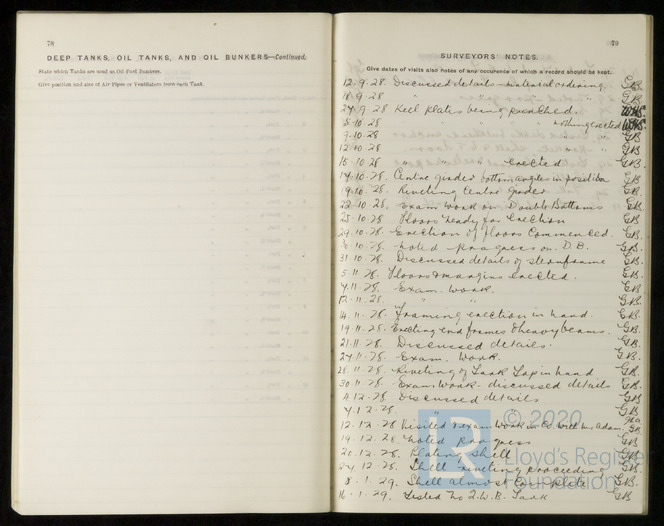 78
DEEP TANKS, OIL TANKS, AND OIL BUNKERS—Continued.
State which Tanks are used as Oil Fuel Bunkers.
Give position and size of Air Pipes or Ventilators from each Tank.
79
SURVEYORS' NOTES.
Give dates of visits also notes of any occurence of which a record should be kept.
12.9.28 Discussed details - material ordering. GB.
18.9.28 " " GB.
24.9.28 Keel plates being punched.
8.10.28 nothing erected
9.10.28 " GB.
12.10.28 " GB.
15.10.28 " " " erected GB.
17.10.28. Centre girder bottom angles in position GB.
19.10.28. Riveting Centre girder GB.
22.10.28. Exam work on Double Bottoms GB.
25.10.28 Floors ready for erection GB.
29.10.28. Erection of floors Commenced. GB.
.10.28. noted progress on D.B. GB.
31.10.28. Discussed details of sternframe GB.
5.11.28. Floors & margins erected. GB.
7.11.28. Exam. work. GB.
12.11.28. " " GB.
14.11.28. Framing erection in hand. GB.
19.11.28. Erecting end frames & heavy beams. GB.
21.11.28. Discussed details. GB.
27.11.28. Exam. Work. GB.
28.11.28. Riveting of Tank Top in hand GB.
30.11.28. Exam work - discussed details GB.
4.12.28. Discussed details GB.
7.12.28. " " GB.
12.12.28 Visited & exam work in Co. with Mr Adam. GB.
19.12.28 noted progress GB.
20.12.28. Plating Shell GB.
27.12.28. Shell riveting proceeding GB.
8.1.29. Shell almost Complete GB.
16.1.29. Tested No 2. W.B. Tank GB.
LR
© 2020
Lloyd's Register
Foundation